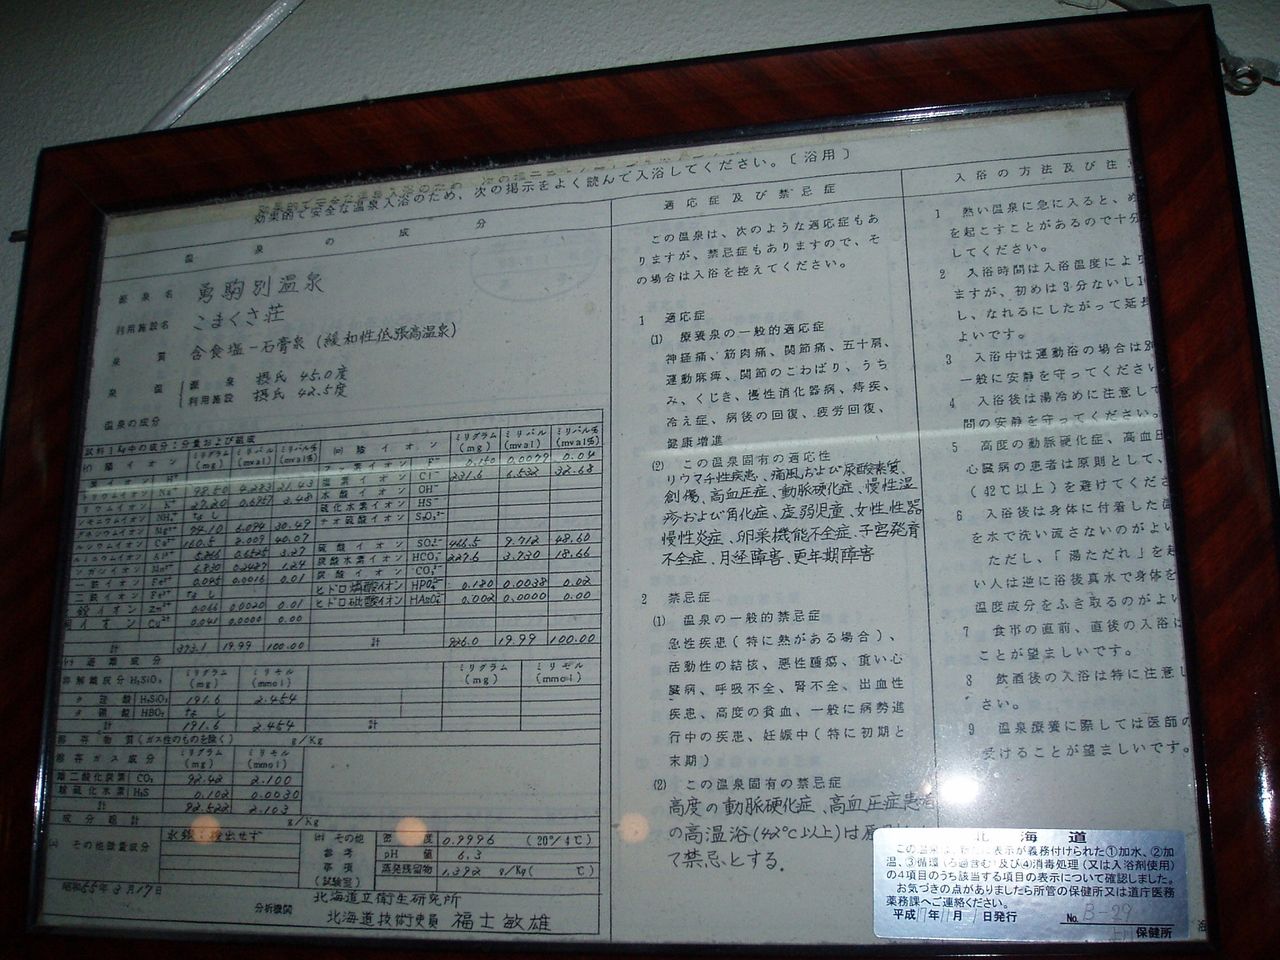 効果的で安全な温泉入浴のため、次の掲示をよく読んで入浴してください。〔浴用〕
温泉の成分
源泉名 勇駒別温泉
利用施設名 こまくさ荘
泉質 含食塩-石膏泉(緩和性低張高温泉)
泉温 源泉 摂氏 45.0度
利用施設 摂氏 42.5度
温泉の成分
試料1kg中の成分:分量および組成
陽イオン ミリグラム(mg) ミリバル(mval) ミリバル%(mval%)
ナトリウムイオン Na⁺ 98.50 4.283 21.43
カリウムイオン K⁺ 27.20 0.6957 3.48
アンモニウムイオン NH₄⁺ なし
マグネシウムイオン Mg²⁺ 74.10 6.094 30.49
カルシウムイオン Ca²⁺ 160.5 8.009 40.07
アルミニウムイオン Al³⁺ 3.27
マンガンイオン Mn²⁺ 6.830 0.2487 1.24
第一鉄イオン Fe²⁺ 0.045 0.0016 0.01
第二鉄イオン Fe³⁺ なし
亜鉛イオン Zn²⁺ 0.066 0.0020 0.01
銅イオン Cu²⁺ 0.041 0.0000 0.00
計 373.1 19.99 100.00
(ロ) 陰イオン ミリグラム(mg) ミリバル(mval) ミリバル%(mval%)
フッ素イオン F⁻ 0.150 0.0079 0.04
塩素イオン Cl⁻ 231.6 6.532 32.68
水酸イオン OH⁻
硫化水素イオン HS⁻
チオ硫酸イオン S₂O₃²⁻
硫酸イオン SO₄²⁻ 466.5 9.712 48.60
炭酸水素イオン HCO₃⁻ 227.6 3.730 18.66
炭酸イオン CO₃²⁻
ヒドロ燐酸イオン HPO₄²⁻ 0.180 0.0038 0.02
ヒドロ砒酸イオン HAsO₄²⁻ 0.002 0.0000 0.00
計 926.0 19.99 100.00
遊離成分
非解離成分 ミリグラム(mg) ミリモル(mmol)
メタ珪酸 H₂SiO₃ 191.6 2.454
メタ硼酸 HBO₂ なし
計 191.6 2.454
計
ミリグラム(mg) ミリモル(mmol)
溶存物質(ガス性のものを除く) g/Kg
溶存ガス成分 ミリグラム(mg) ミリモル(mmol)
遊離二酸化炭素 CO₂ 92.42 2.100
遊離硫化水素 H₂S 0.102 0.0030
計 92.522 2.103
成分総計 g/Kg
その他微量成分 水銀:検出せず
その他参考事項(試験室)
密度 0.9996 (20°/4℃)
pH値 6.3
蒸発残留物 1.392 g/Kg( ℃)
昭和55年3月17日
分析機関 北海道立衛生研究所
北海道技術吏員 福士敏雄
適応症及び禁忌症
この温泉は、次のような適応症もあ
りますが、禁忌症もありますので、そ
の場合は入浴を控えてください。
1 適応症
(1) 療養泉の一般的適応症
神経痛、筋肉痛、関節痛、五十肩、
運動麻痺、関節のこわばり、うち
み、くじき、慢性消化器病、痔疾、
冷え症、病後の回復、疲労回復、
健康増進
(2) この温泉固有の適応性
リウマチ性疾患、痛風および尿酸素質、
創傷、高血圧症、動脈硬化症、慢性湿
疹および角化症、虚弱児童、女性性器
慢性炎症、卵巣機能不全症、子宮発育
不全症、月経障害、更年期障害
2 禁忌症
(1) 温泉の一般的禁忌症
急性疾患(特に熱がある場合)、
活動性の結核、悪性腫瘍、重い心
臓病、呼吸不全、腎不全、出血性
疾患、高度の貧血、一般に病勢進
行中の疾患、妊娠中(特に初期と
末期)
(2) この温泉固有の禁忌症
高度の動脈硬化症、高血圧症患者
の高温浴(42℃以上)は原
て禁忌とする。
入浴の方法及び注
1 熱い温泉に急に入ると、め
を起こすことがあるので十分
してください。
2 入浴時間は入浴温度により
ますが、初めは3分ないし10
し、なれるにしたがって延長
よいです。
3 入浴中は運動浴の場合は別
一般に安静を守ってください
4 入浴後は湯冷めに注意して
間の安静を守ってください。
5 高度の動脈硬化症、高血圧
心臓病の患者は原則として、
(42℃以上)を避けてくださ
6 入浴後は身体に付着した温
を水で洗い流さないのがよい
ただし、「湯ただれ」を起
い人は逆に浴後真水で身体を
温度成分をふき取るのがよい
7 食事の直前、直後の入浴は
ことが望ましいです。
8 飲酒後の入浴は特に注意し
さい。
9 温泉療養に際しては医師の
受けることが望ましいです。
北海道
この温泉は、新たに表示が義務付けられた①加水、②加
温、③循環(ろ過含む)及び④消毒処理(又は入浴剤使用)
の4項目のうち該当する項目の表示について確認しました。
お気づきの点がありましたら所管の保健所又は道庁医務
薬務課へご連絡ください。
平成17年11月 日発行 No. B-29
上川保健所